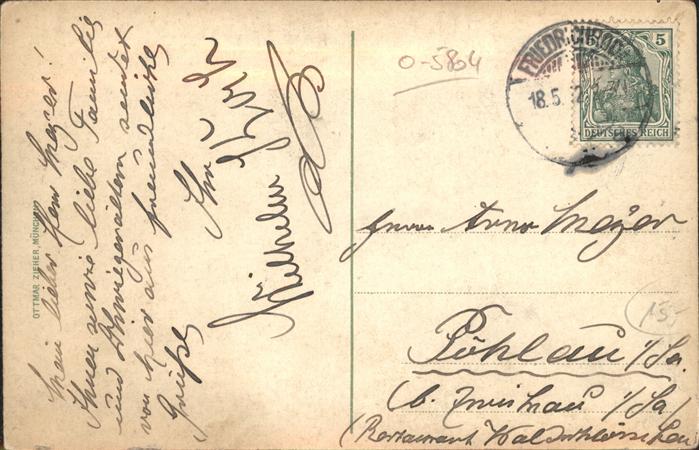 Mein lieber Herr Meyer!
Ihnen sowie liebe Familie
und Schwiegereltern sendet
von hier aus freundliche
Grüße
Ihr
Wilhelm
OTTMAR ZIEHER, MÜNCHEN
0-5804
FRIEDRICHRODA
18.5.
5
DEUTSCHES REICH
Herrn Arno Meyer
15,-
Pöhlau i/Sa.
(b. Zwickau i/Sa)
(Restaurant Waldschlösschen)